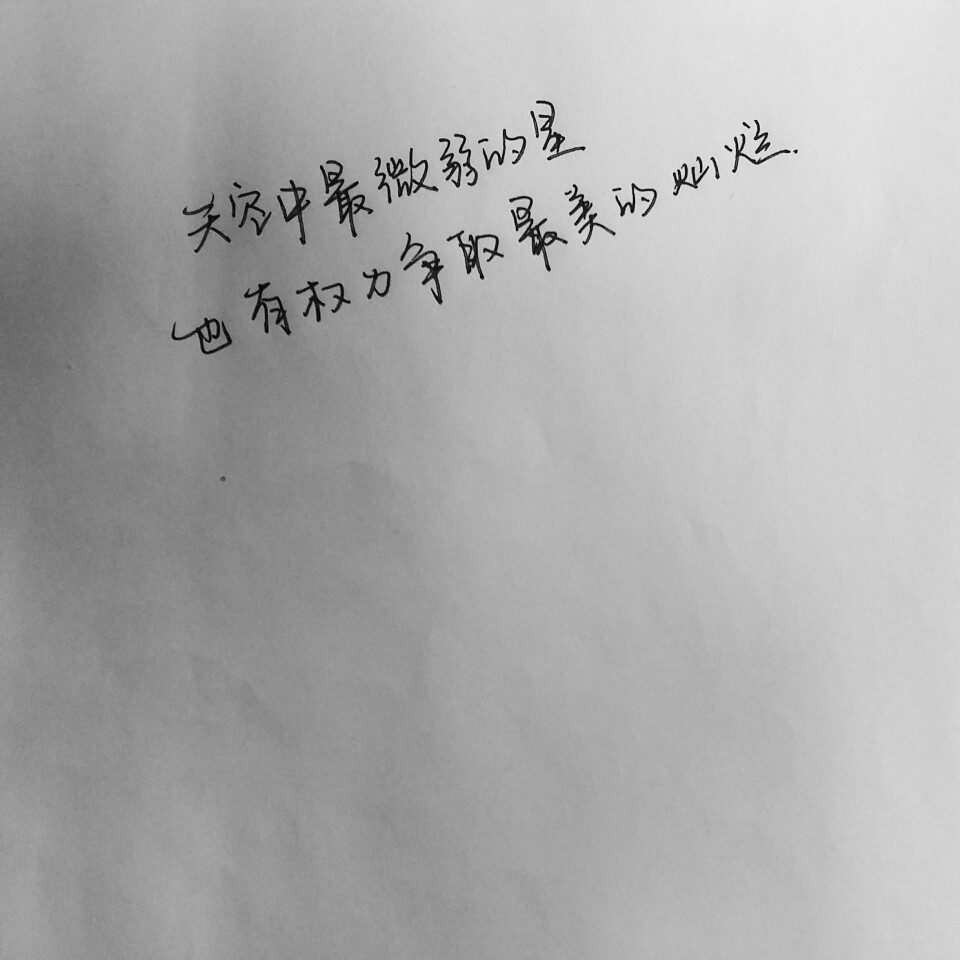 天空中最微弱的星
也有权力争取最美的灿烂.